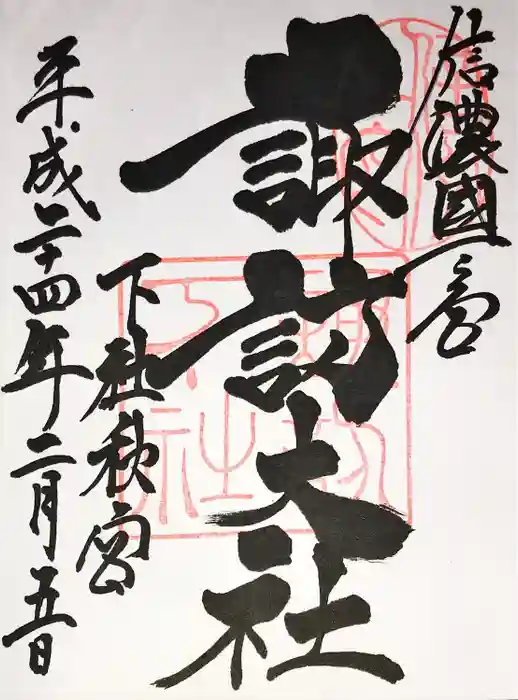 信濃國一宮
諏訪大社
下社秋宮
平成二十四年二月五日